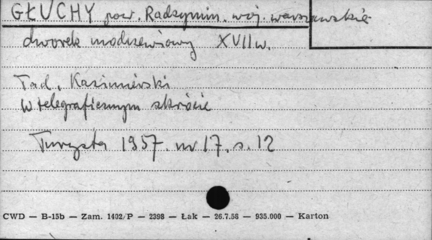 GŁUCHY pow. Radzymin. woj. warszawskie
dworek modrzewiowy XVII w.
Tad. Kazimierski
W telegraficznym skrócie
Turysta 1957. nr 17. s. 12
CWD — B-15b — Zam. 1402/P — 2398 — Łak — 26.7.56 — 935.000 — Karton